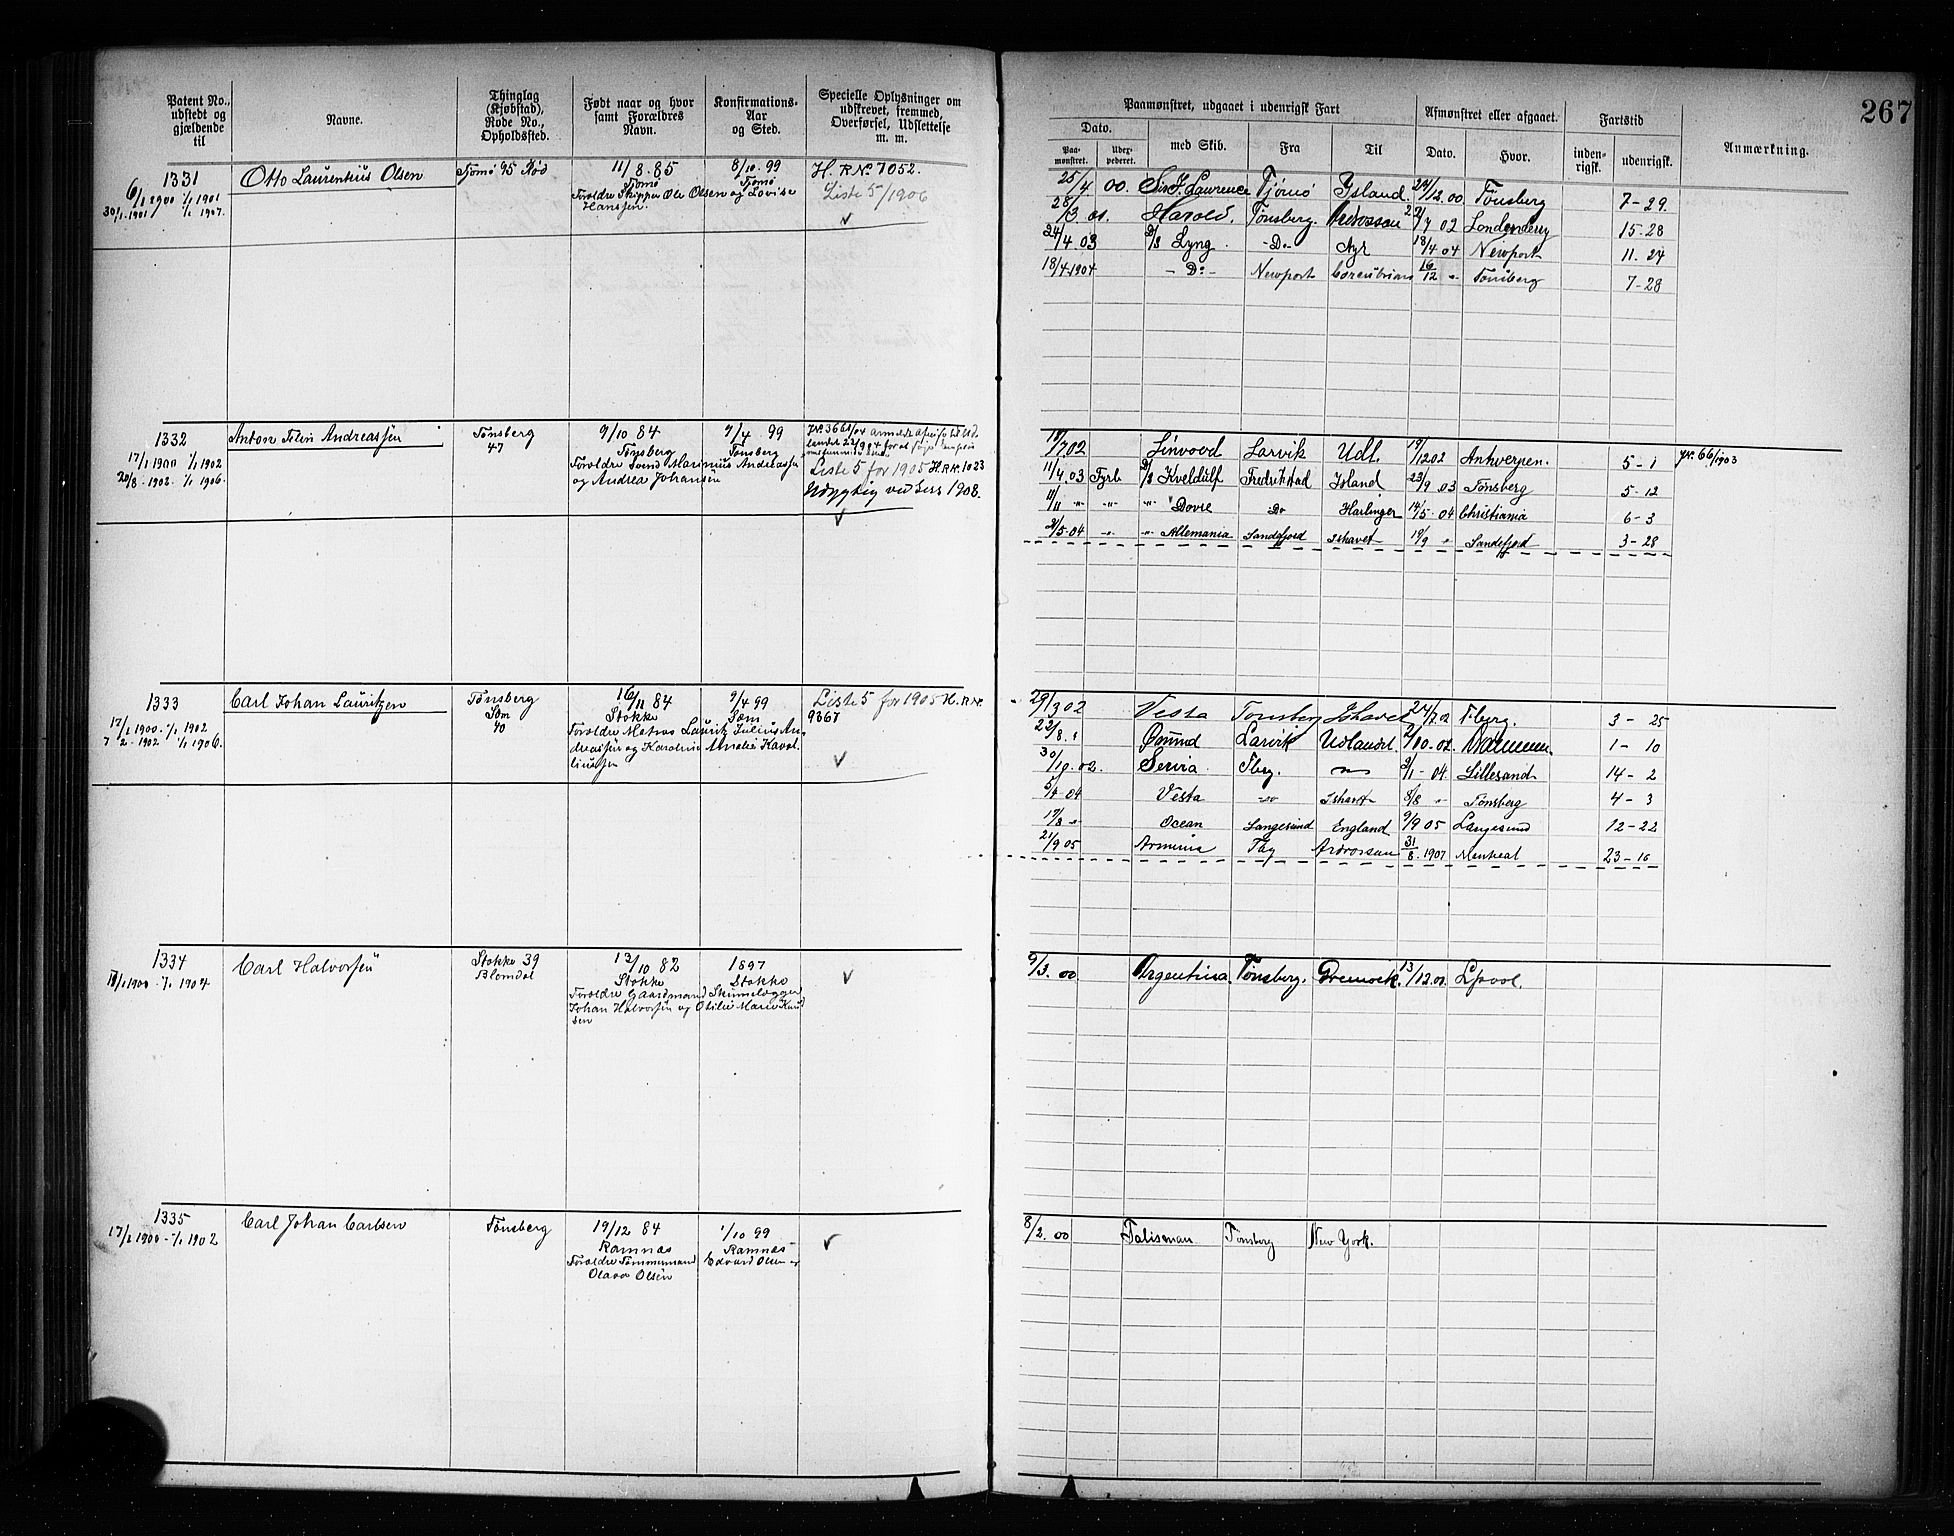 267
Patent No., udstedt og gjældende til
Navne.
Thinglag (Kjøbstad), Rode No., Opholdssted.
Født naar og hvor samt Forældres Navn.
Konfirmations-Aar og Sted.
Specielle Oplysninger om udskrevet, fremmed, Overførsel, Udslettelse m. m.
Paamønstret, udgaaet i udenrigsk Fart
Afmønstret eller afgaaet.
Fartstid
Anmærkning.
Dato.
Paa-mønstret.
med Skib.
Fra
Til
Dato.
Hvor.
inden-rigsk.
udenrigsk.
1331
6/1 1900 1/1 1901
30/1 1901 1/1 1907.
Otto Laurentius Olsen
Tjømø 95 Rød
11/8.85
Tjømø
Forældre Skipper Ole Olsen og Lovise
Hanssen.
8/10.99
Tjømø
H.R.No. 7052.
Liste 5/1906
25/4 00. Sir J. Lawrence Tjømø Ysland. 24/12.00 Tønsberg 7-29.
28/3 01. Harold. Tønsberg. Ardrossan 22/7 02 Londonderry 15-28
24/4 03 D/S Lyng. -Do- Ayr 18/4 04 Newport 11.24
18/4 1904 -Do- Newport 16/12 " Tønsberg 7-28
1332
17/1 1900 1/1 1902
20/8.1902. 1/1 1906.
Anton Andreassen
Tønsberg
47
9/10 84
Tønsberg
Forældre Svend Marinius Andreassen
og Andrea Johansen
9/4 99
Tønsberg
Liste 5 for 1905 H.R.No. 1023
Udygtig ved Sess 1908.
/702 Linwood Larvik Udl. 19/1202 Antwerpen. 5-1 JN. 66/1903
11/4.03 Fyrb D/S Kveldulf Fredrikstad Island 23/9 03 Tønsberg 5-12
11/11 " " " Dovre Do Harlingen 14/5-04 Christiania 6-3
2/5-04 " " Allemania Sandefjord Ishavet 19/9 " Sandefjord 3-28
1333
17/1 1900. 1/1 1902
7/2-1902 1/1 1906.
Carl Johan Lauritzen
Tønsberg
Søm
40
16/11 84
Stokke
Forældre Matros Lauritz Julius An-
dreassen og Karoline Amalie Kavel-
linussen
9/4 99
Søm
Liste 5 for 1905 H.R.No.
9367
29/3 02 Vesta Tønsberg Ishavet /7 02 T.berg. 3-25
22/8. " Gømund Larvik Udlandet. 2/10-02 1-10
30/10.02. Servia Tberg. " 2/1-04. Lillesand 14-2
5/4-04 Vesta -Do- Ishavet 8/8 " Tønsberg 4-3
17/8 " Ocean Langesund England 9/9 05 Langesund 12-22
21/9 05 Arminia Tbg Ardrossan 31/8.1907 Montreal 23-10
1334
18/1 1900 1/1 1904
Carl Halvorsen
Stokke 39
Blomdal
13/10 82
Stokke
Forældre Gaardmand Skumelegger
Johan Halvorsen og Otilie Marie Knud
sen
1897
Stokke
9/3.00 Argentina. Tønsberg. 13/12.00. Lpool.
1335
17/1 1900-1/1 1902
Carl Johan Carlsen
Tønsberg
19/12 84
Ramnæs
Forældre Tømmermand
Olava Olsen
1/10 99
Ramnæs
Edvard Olsen og
8/2.00 Talisman Tønsberg New York.